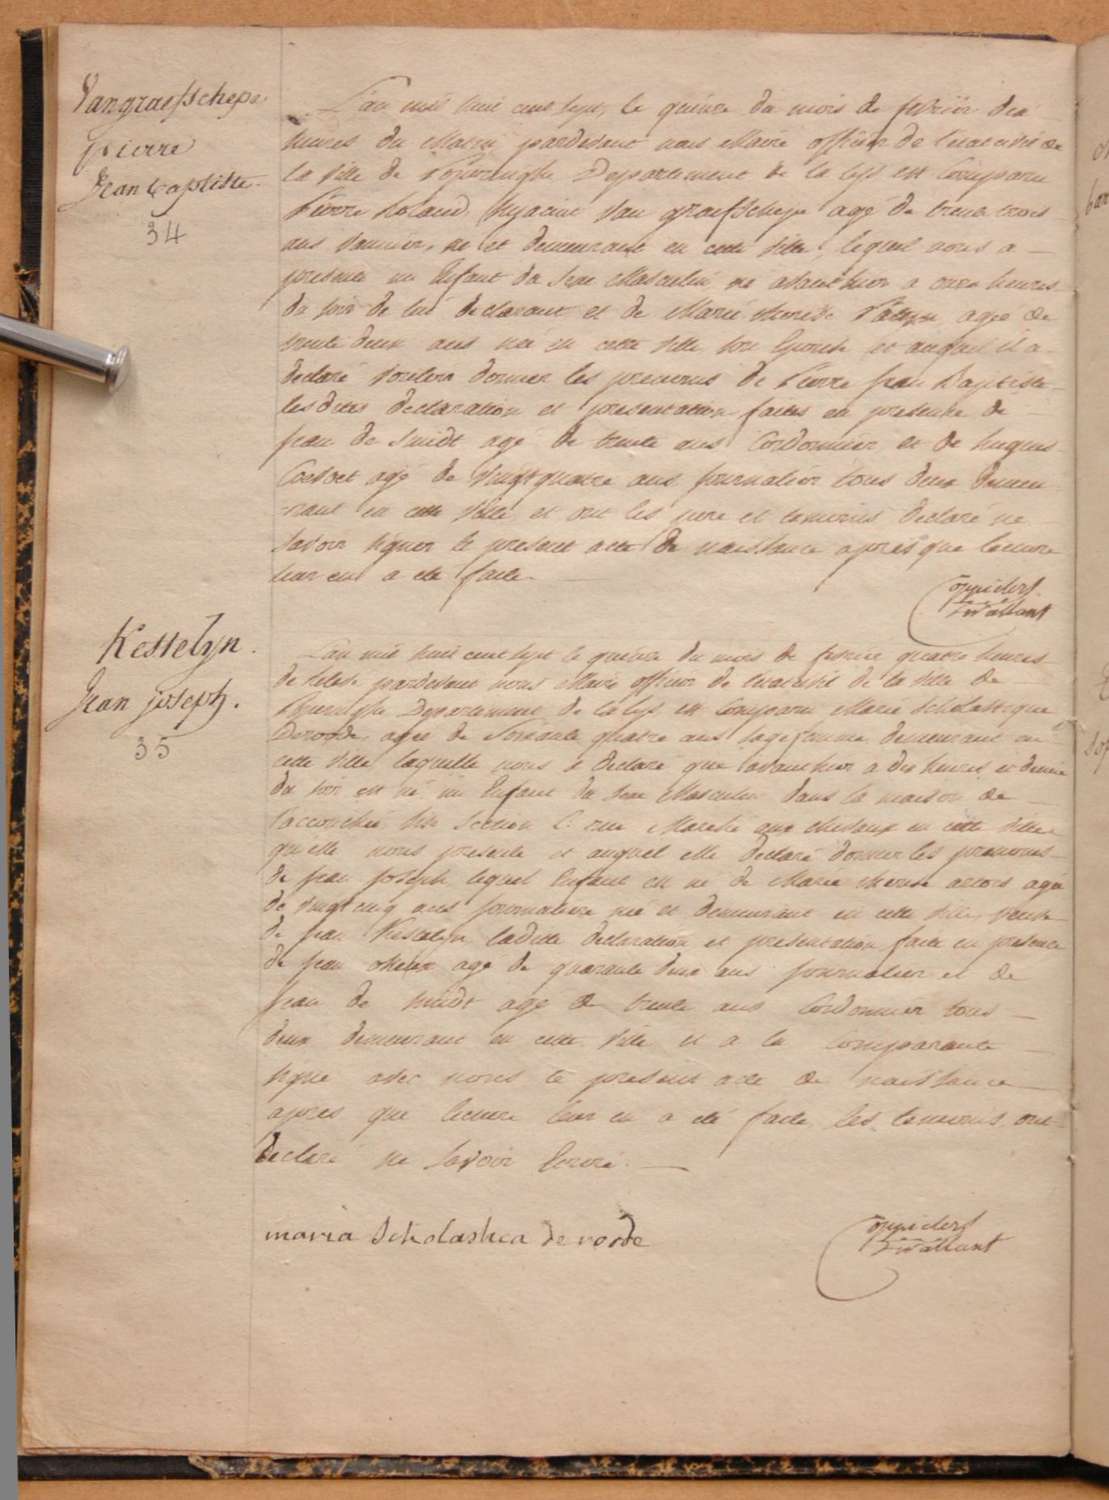 Vangraefschepe
pierre
Jean baptiste
34
L'an mil huit cent sept, le quinze du mois de fevrier dix
heures du Matin pardevant nous Maire officier de l'etat civil de
la ville de Poperinghe Departement de la Lys est Comparu
Pierre Roland Hyacint Van graefschepe agé de trente trois
ans vannier, né et demeurant en cette ville, lequel nous a
presenté un Enfant du sexe Masculin né avant hier a onze heures
du soir de lui declarant et de Marie therese agée de
trente deux ans née en cette ville son Epouse et auquel il a
declaré vouloir donner les prenoms de Pierre jean Baptiste
lesdites declaration et presentation faites en presence de
jean de Smidt agé de trente ans Cordonnier et de hugues
agé de vingt quatre ans journalier tous deux demeu
rant en cette ville et ont les pere et temoins declaré ne
savoir signer le present acte de naissance apres que lecture
leur en a eté faite
Kesselyn.
Jean joseph.
35
L'an mil huit cent sept le quinze du mois de fevrier quatre heures
de relevé pardevant nous Maire officier de l'etat civil de la ville de
Poperinghe Departement de la Lys est Comparu Marie Scholastique
Deroode agée de soixante quatre ans sagefemme demeurant en
cette ville laquelle nous a declaré que avant hier a dix heures et demie
du soir est né un Enfant du sexe Masculin dans la maison de
l'accouchée sise Section C. rue Marché aux chevaux en cette ville
qu'elle nous presente et auquel elle declaré donner les prenoms
de jean joseph lequel Enfant est né de Marie therese agée
de vingt cinq ans journaliere née et demeurant en cette ville, veuve
de jean Kesselyn ladite declaration et presentation faite en presence
de jean agé de quarante deux ans journalier et de
jean de Smidt agé de trente ans Cordonnier tous
deux demeurant en cette ville et a la comparante
signé avec nous le present acte de naissance
apres que lecture leur en a eté faite les temoins ont
declaré ne savoir Ecrire.
maria Scholastica de roode